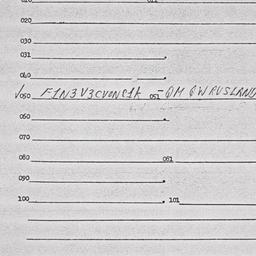 020
030
031
040
√050 F1N3V3CVONC1A 051 -QM QWRUSLAND
060
070
080 081
090
100 101